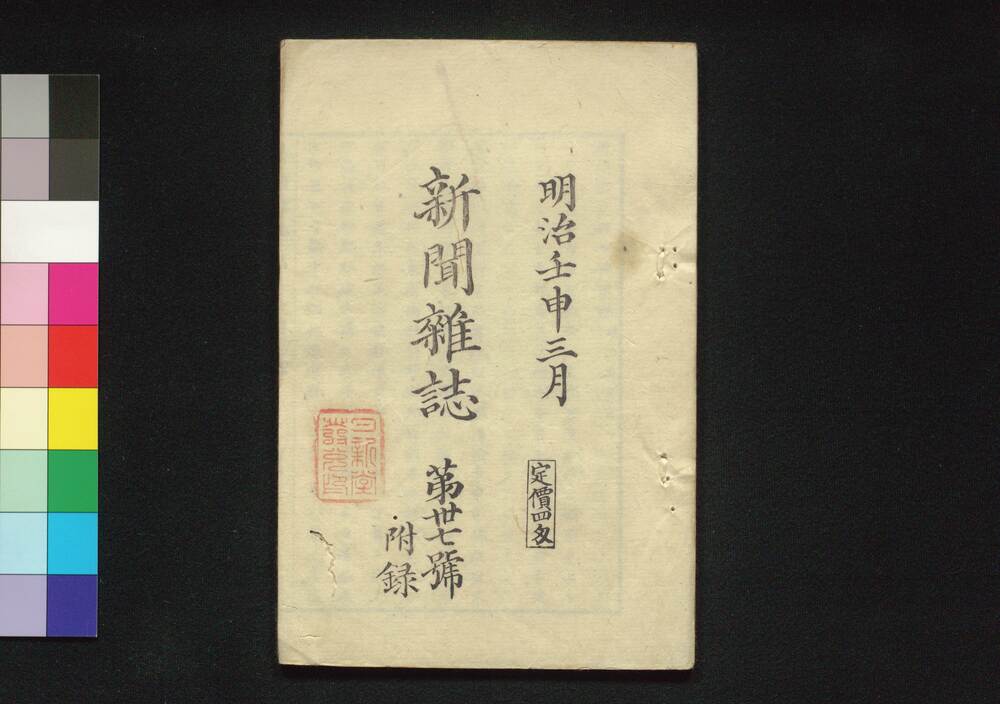 明治壬申三月
定價四匁
新聞雜誌 第卅七號
附録
日新堂
發兌印